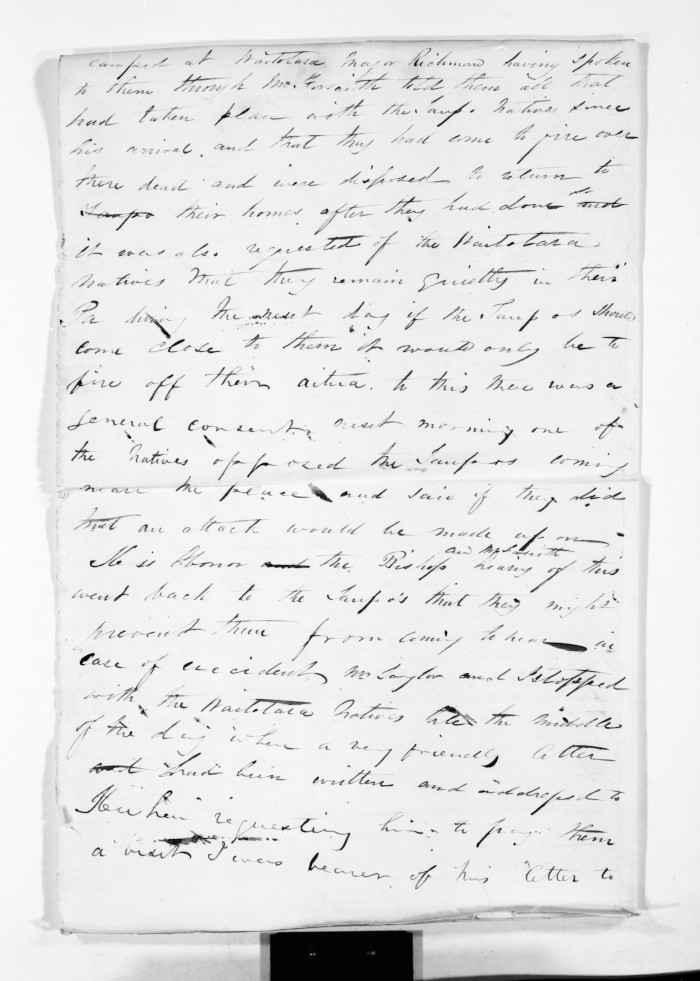 camped at Waitotara Major Richmond having spoken
to them through Mr Forsaith told them all that
had taken place with the Taupo Natives since
his arrival and that they had come to fire over
there dead and were disposed to return to
Taupo their homes after they had done so and
it was also requested of the Waitotara
Natives that they remain quietly in their
Pa during the next day if the Taupos should
come close to them it would only be to
fire off their aitua. to this there was a
general consent, next morning one of
the Natives opposed the Taupos coming
near the place and said if they did
that an attack would be made upon
He is Honor and the Bishop and Mr Forsaith hearing of this
went back to the Taupos that they might
prevent them from coming to near in
case of accident, Mr Taylor and I stopped
with the Waitotara Natives till the middle
of the day when a very friendly letter
and had been written and addressed to
requesting him to pay them
a visit I was bearer of this letter to